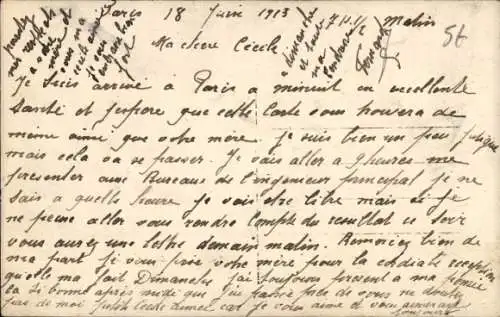 Paris 18 Juin 1913 7 H 1/2 Matin
Ma chere Cécile
Je suis arrivé a Paris a minuit en excellente
Santé et j'espere que cette Carte vous trouvera de
meme ainsi que votre mère. Je suis bien un peu fatigué
mais cela va se passer. Je vais aller a 9 heures me
presenter aux Bureaux de l'ingenieur principal je ne
sais a quelle heure je vais etre libre mais si je
ne peux aller vous rendre Compte du resultat ce soir
vous aurez une lettre demain matin. Remerciez bien de
ma part je vous prie votre mère pour la cordiale reception
qu'elle ma fait Dimanche j'ai toujours present a ma pensée
la si bonne après midi que j'ai passé près de vous ne doutez
pas de moi petite Cecile aimée car je vous aime et vous aimerai
toujours
56